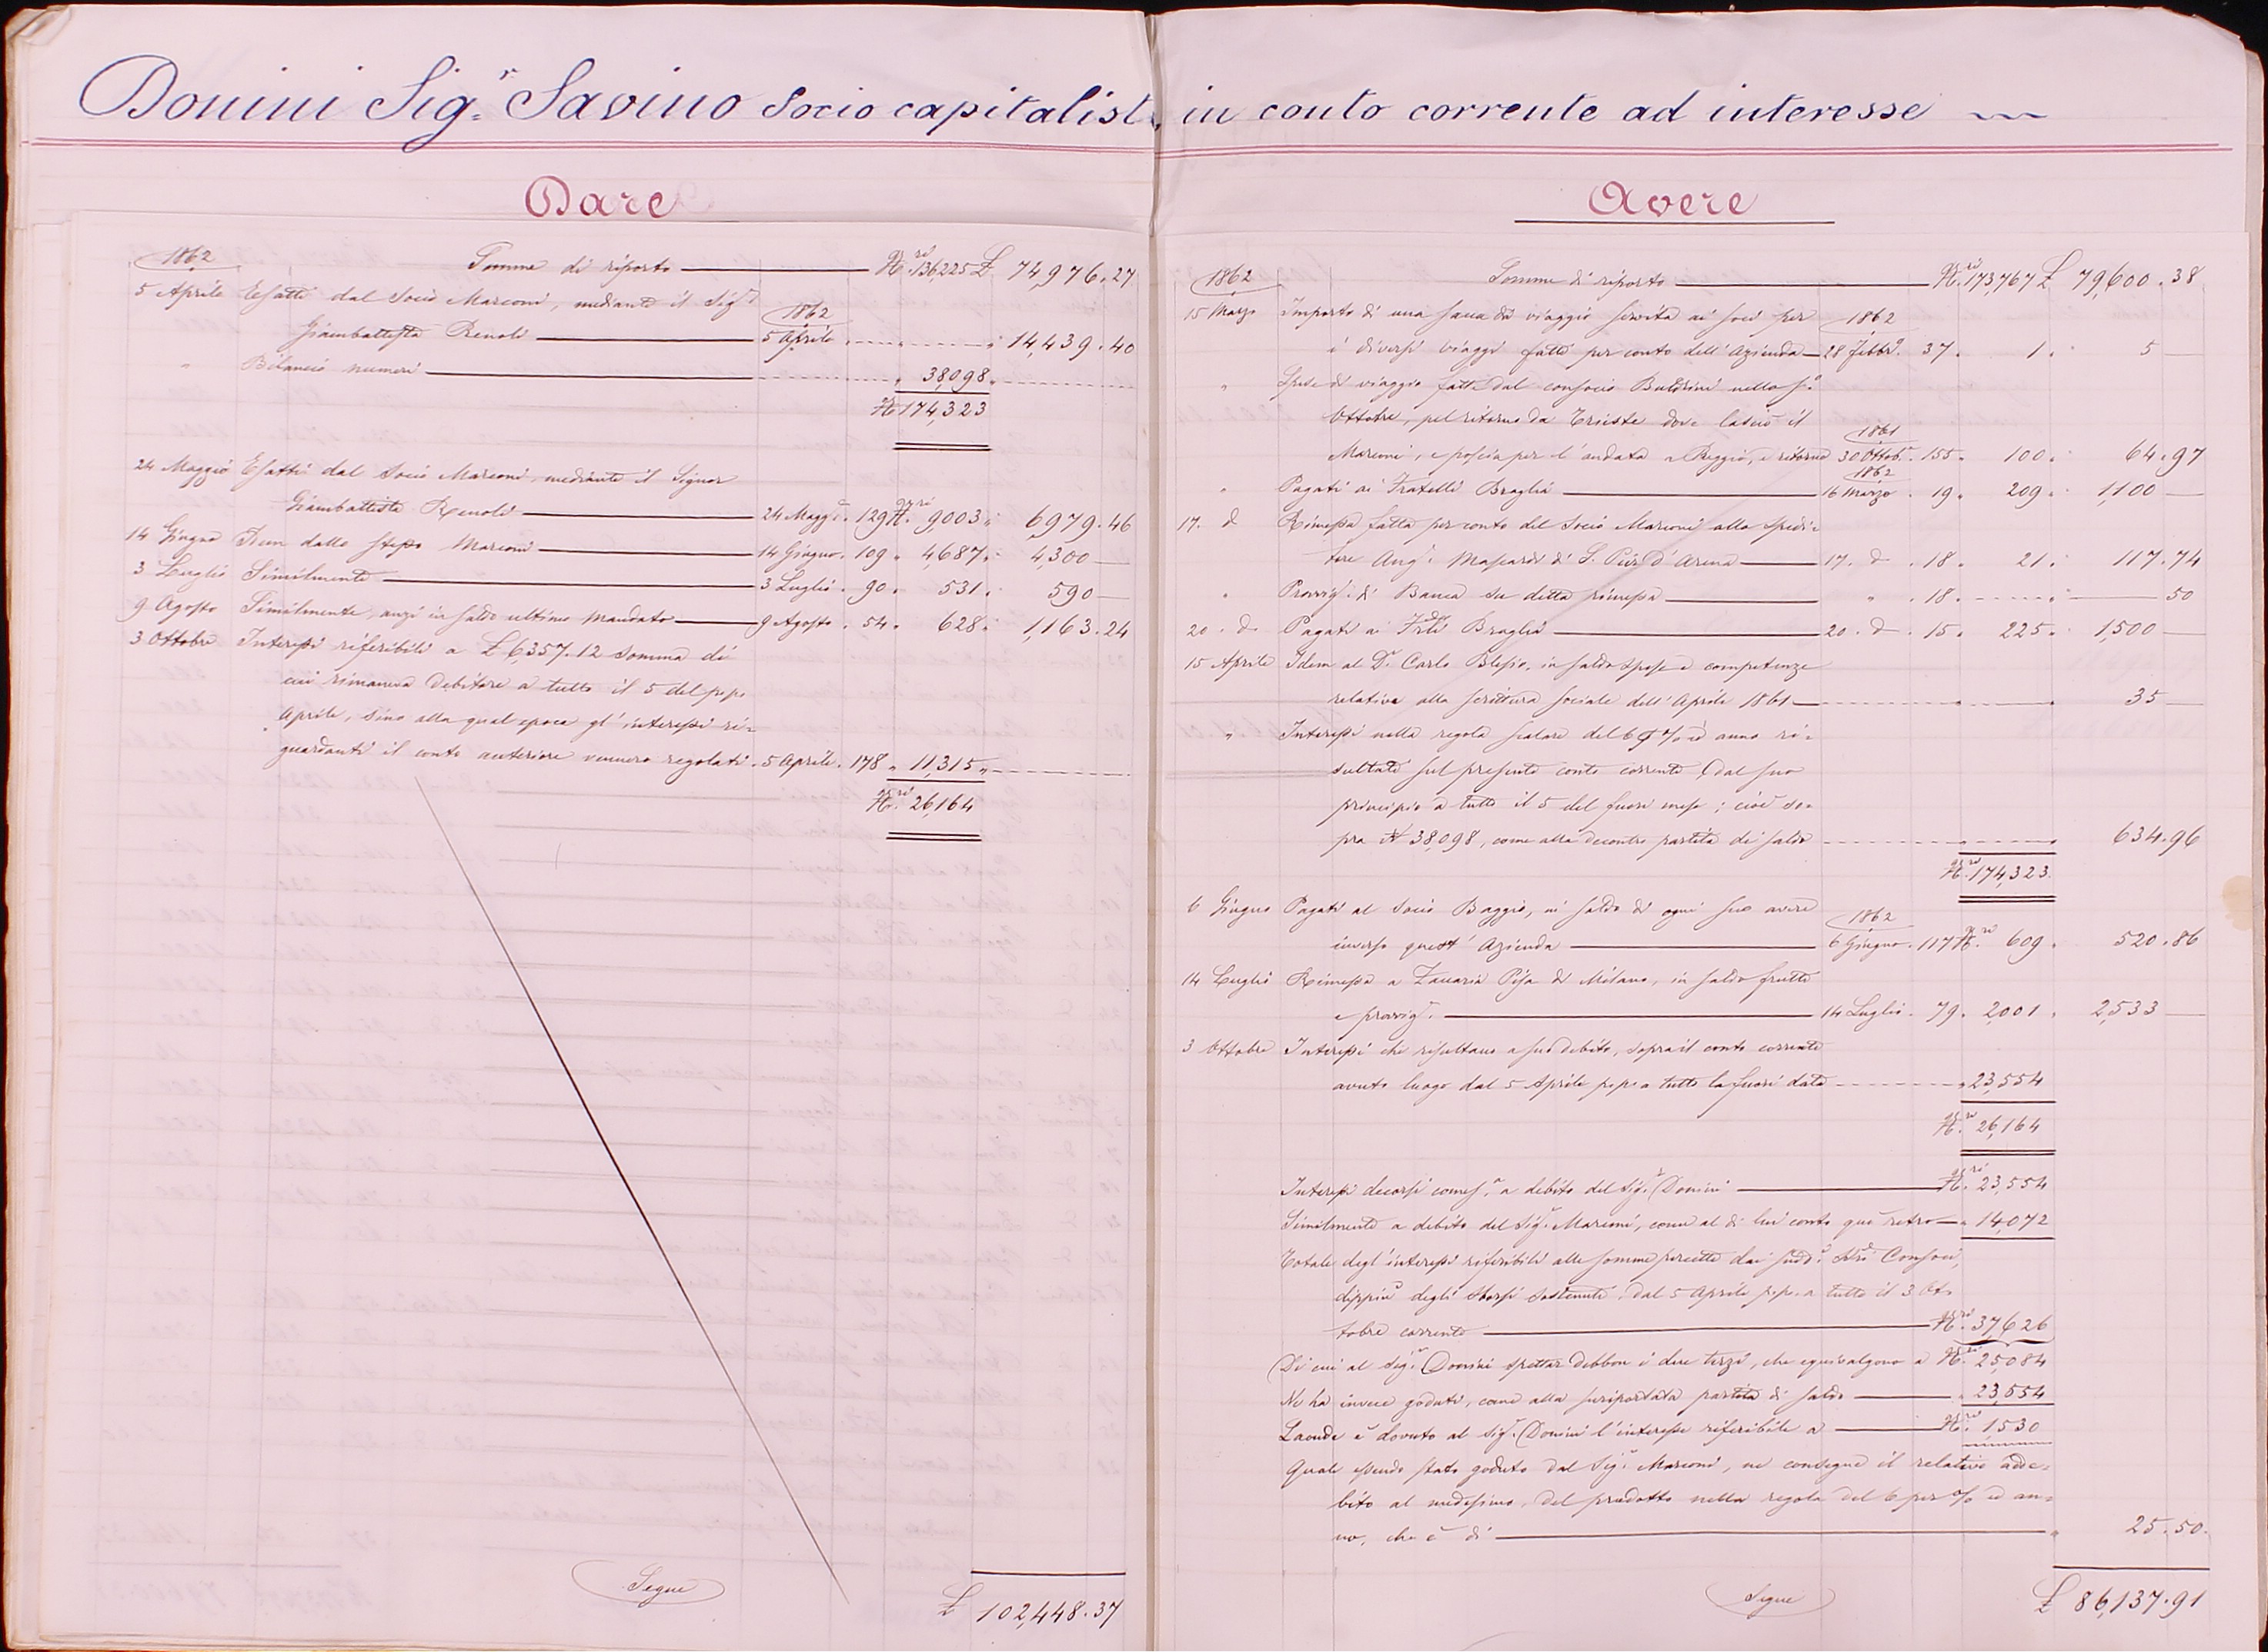 Donini Sig.r Savino Socio capitalista in conto corrente ad interesse
Dare
1862 Somme di riporto N.ri 136,225 £ 74,976.27
5 Aprile Esatti dal Socio Marconi, mediante il Sig.r
Giambattista Renoli 1862 5 Aprile 14,439.40
" Bilancio numeri " 38,098 "
N. 174,323
24 Maggio Esatti dal Socio Marconi mediante il Signor
Giambattista Renoli 24 Magg.o 129 N.ri 9003 " 6,979.46
14 Giugno Idem dallo stesso Marconi 14 Giugno. 109 " 4,687 " 4,300 —
3 Luglio Similmente 3 Luglio. 90 " 531 " 590 —
9 Agosto Similmente, anzi in saldo ultimo mandato 9 Agosto. 54 " 628 " 1,163.24
3 Ottobre Interessi riferibili a £ 6,357.12 somma di
cui rimaneva debitore a tutto il 5 del p.p.o
Aprile, sino alla qual epoca gl'interessi ri=
guardanti il conto anteriore vennero regolati. 5 Aprile. 178 " 11,315 "
N.ri 26,164
Segue £ 102,448.37
Avere
1862 Somme di riporto N.ri 173,767 £ 79,600.38
15 Marzo Importo di una sacca da viaggio servita ai soci per 1862
i diversi viaggi fatti per conto dell'Azienda 28 Febbr.o 37. 1. 5 —
" Spese di viaggio fatte dal consocio Baldrini nello s.o
Ottobre, pel ritorno da Trieste dove lasciò il 1861
Marconi, e poscia per l'andata a Reggio, e ritorno 30 Ottob.e 155. 100. 64.97
" Pagati ai Fratelli Braglia 1862 16 Marzo. 19. 209. 1,100 —
17. d.o Rimessa fatta per conto del Socio Marconi allo spedi=
tore Ang.o Massardi di S. Pier d'Arena 17. d.o. 18. 21. 117.74
" Provvig.e di Banca su detta rimessa " . 18. 50
20. d.o Pagati ai d.i F.lli Braglia 20. d.o. 15. 225. 1,500 —
15 Aprile Idem al D.r Carlo in saldo spese e competenze
relative alla scrittura sociale dell'Aprile 1861 35 —
" Interessi nella regola scalare del 6 % ed anno ri=
sultati sul presente conto corrente, dal suo
principio a tutto il 5 del fuori mese; cioè so=
pra N. 38,098, come alla decontro partita di saldo 634.96
N.ri 174,323
6 Giugno Pagati al Socio Baggio, in saldo di ogni suo avere 1862
inverso quest'Azienda 6 Giugno. 117 N.ri 609. 520.86
14 Luglio Rimessa a Zaccaria Pisa di Milano, in saldo frutti
e provvig.i 14 Luglio. 79. 2,001. 2,533 —
3 Ottobre Interessi che risultano a suo debito, sopra il conto corrente
avuto luogo dal 5 Aprile p.p.o a tutto la fuori data " 23,554
N.ri 26,164
Interessi decorsi come s.a a debito del Sig.r Donini N.ri 23,554
Similmente a debito del Sig.r Marconi, come al di lui conto qui retro " 14,072
Totale degl'interessi riferibili alle somme percette dai sudd.i Consoci,
dippiù degli sborsi sostenuti dal 5 Aprile p.p.o a tutto il 3 Ot=
tobre corrente N.ri 37,626
Di cui al Sig.r Donini spettar debbon i due terzi, che equivalgono a N.ri 25,084
Ne ha invece goduti, come alla suriportata partita di saldo " 23,554
Laonde è dovuto al Sig.r Donini l'interesse riferibile a N.ri 1,530
Quale essendo stato goduto dal Sig.r Marconi, ne consegue il relativo adde=
bito al medesimo, del prodotto nella regola del 6 per % ed an=
no, che è di " 25.50
Segue £ 86,137.91